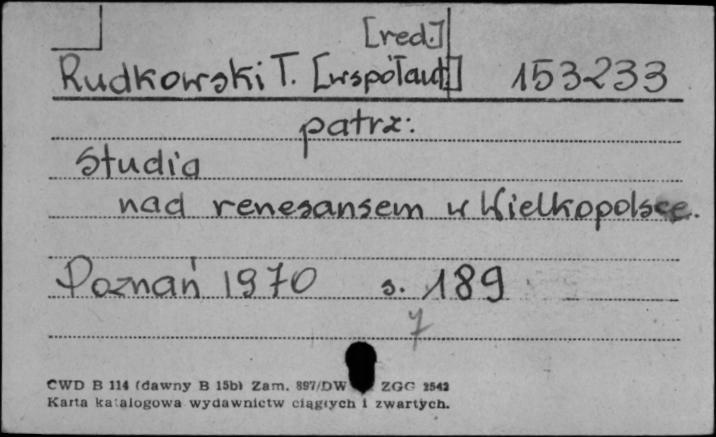 [red.]
Rudkowski T. [współaut.] 153233
patrz:
Studia
nad renesansem w Wielkopolsce.
Poznań 1970 s. 189
7
CWD B 114 (dawny B 15b) Zam. 897/DW ZGG 2542
Karta katalogowa wydawnictw ciągłych i zwartych.